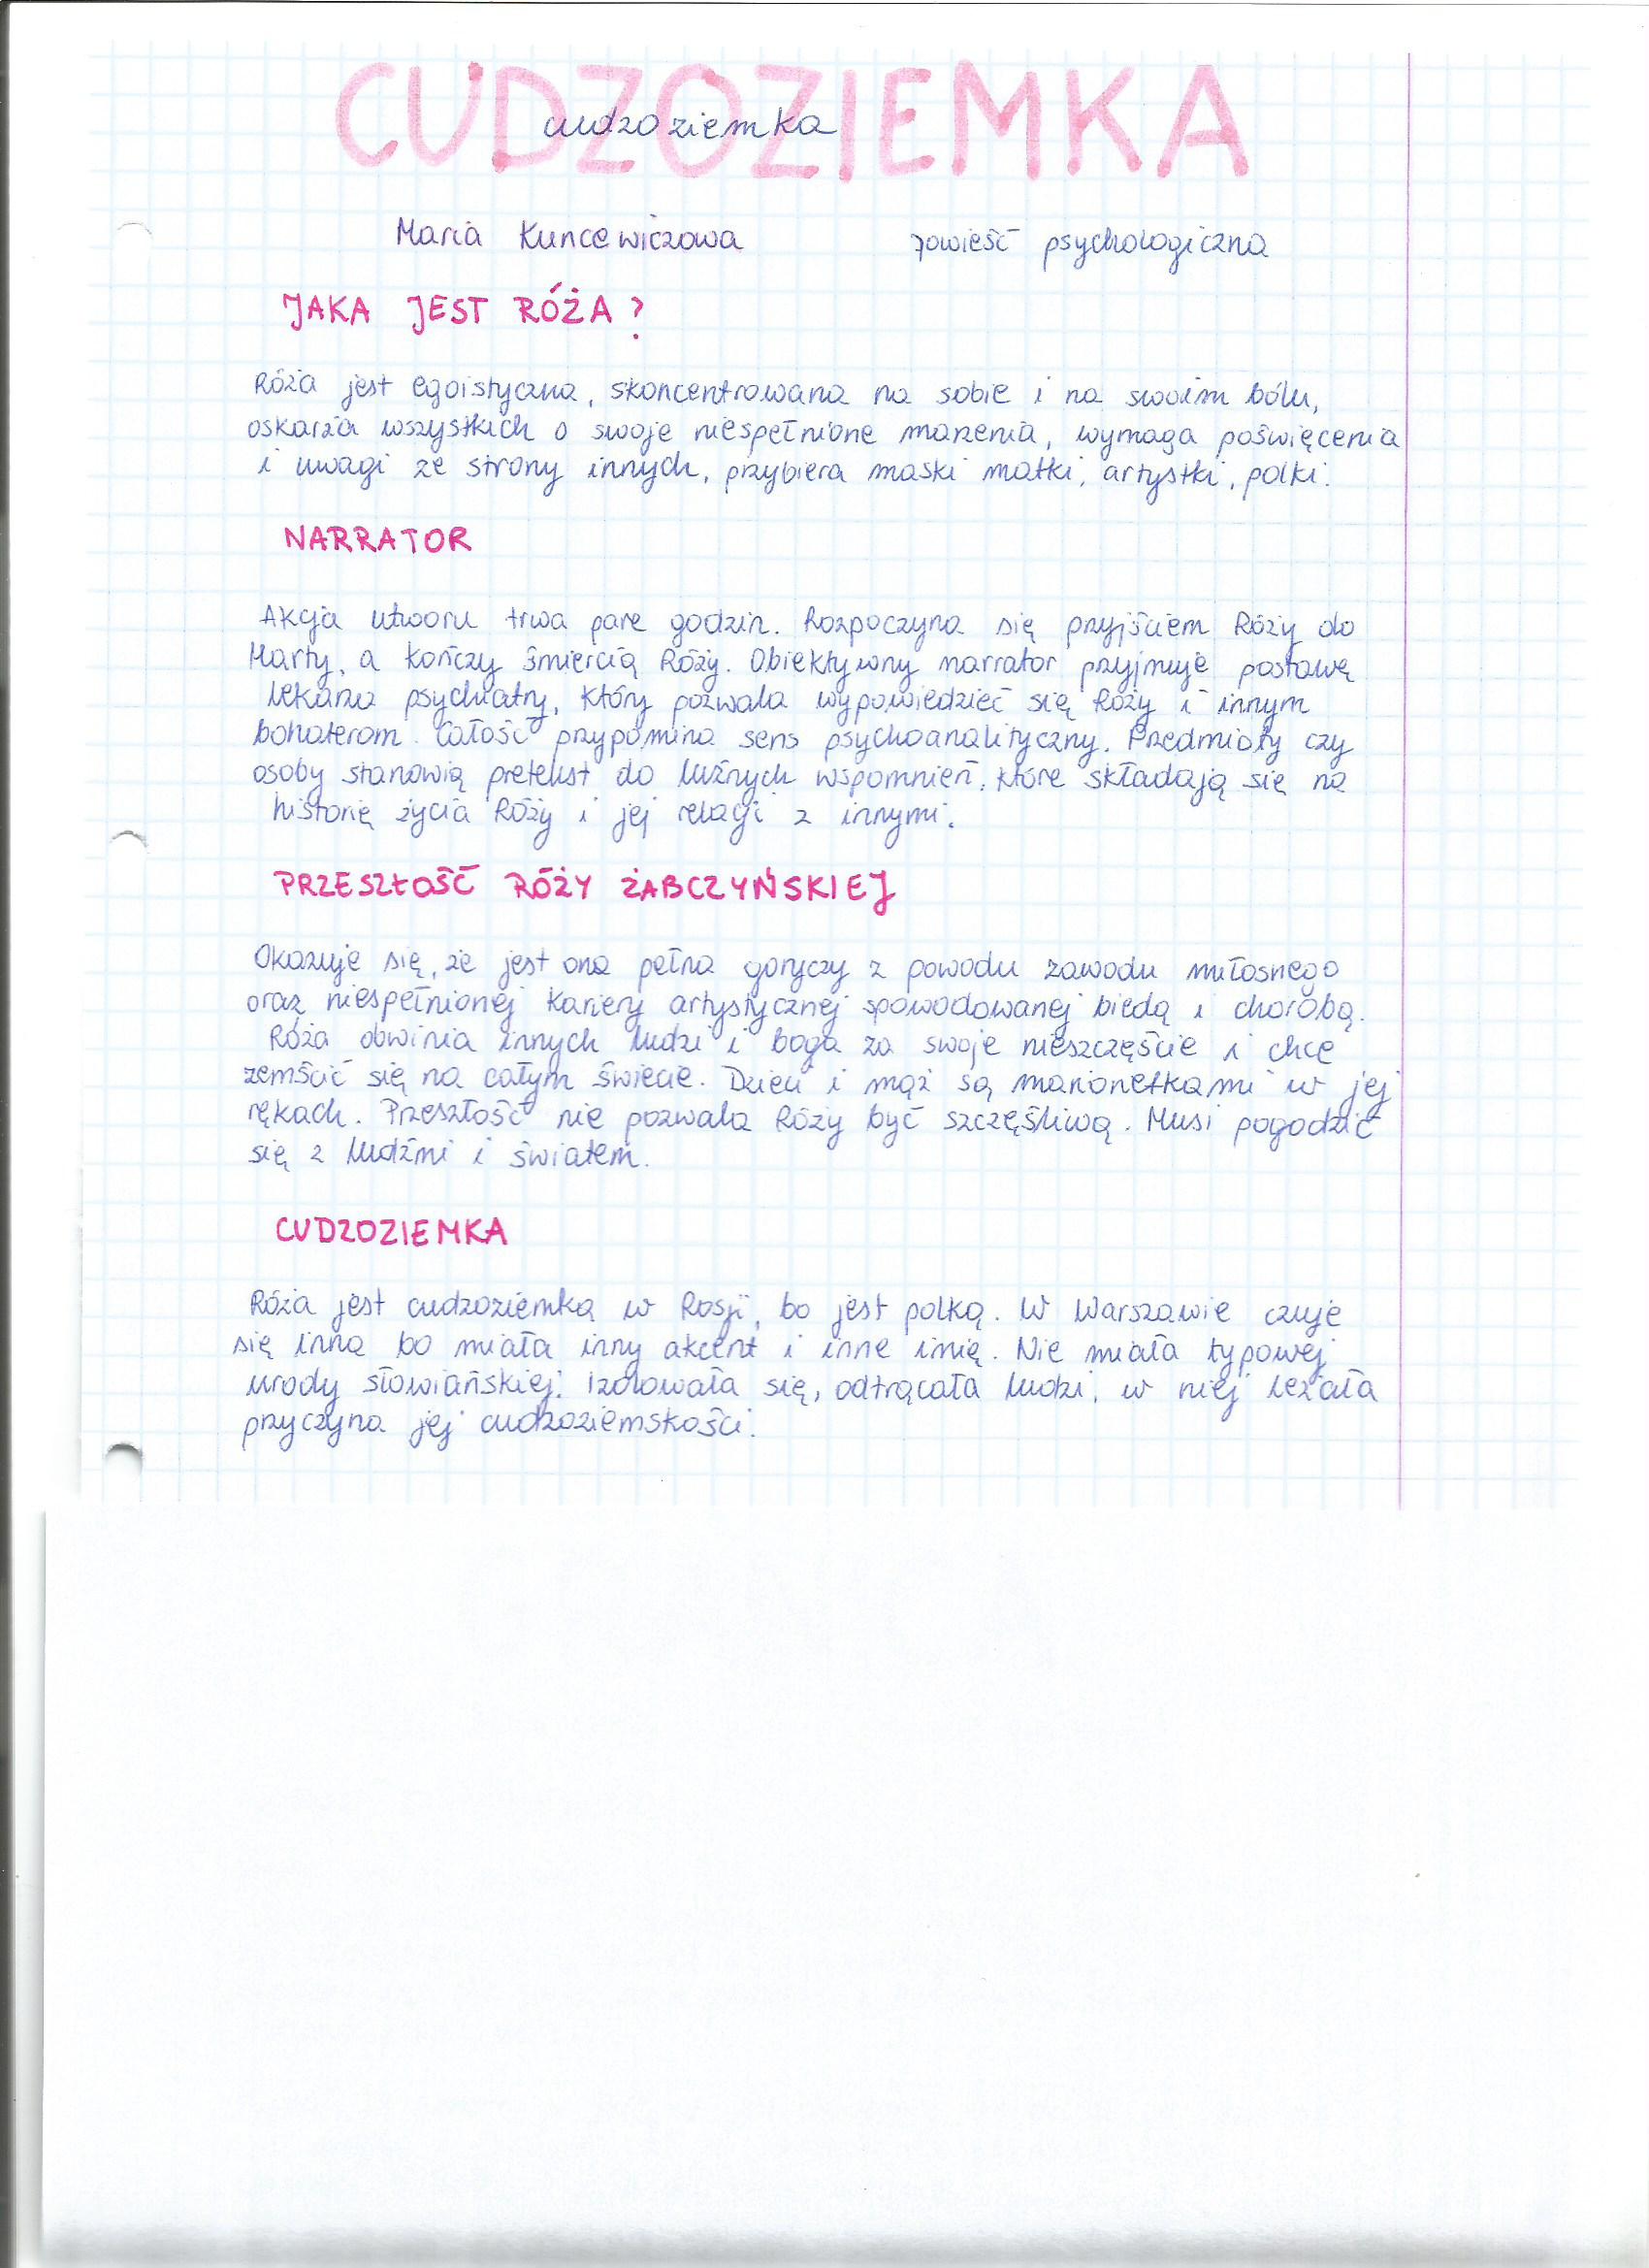 CUDZOZIEMKA
cudzoziemka
Maria Kuncewiczowa powieść psychologiczna
JAKA JEST RÓŻA?
Róża jest egoistyczna, skoncentrowana na sobie i na swoim bólu,
oskarża wszystkich o swoje niespełnione marzenia, wymaga poświęcenia
i uwagi ze strony innych, przybiera maski matki, artystki, polki.
NARRATOR
Akcja utworu trwa parę godzin. Rozpoczyna się przyjściem Róży do
Marty, a kończy śmiercią Róży. Obiektywny narrator przyjmuje postawę
lekarza psychiatry, który pozwala wypowiedzieć się Róży i innym
bohaterom. Całość przypomina sens psychoanalityczny. Przedmioty czy
osoby stanowią pretekst do luźnych wspomnień, które składają się na
historię życia Róży i jej relacji z innymi.
PRZESZŁOŚĆ RÓŻY ŻABCZYŃSKIEJ
Okazuje się, że jest ona pełna goryczy z powodu zawodu miłosnego
oraz niespełnionej kariery artystycznej spowodowanej biedą i chorobą.
Róża obwinia innych ludzi i boga za swoje nieszczęście i chce
zemścić się na całym świecie. Dzieci i mąż są marionetkami w jej
rękach. Przeszłość nie pozwala Róży być szczęśliwą. Musi pogodzić
się z ludźmi i światem.
CUDZOZIEMKA
Róża jest cudzoziemką w Rosji, bo jest polką. W Warszawie czuje
się inna bo miała inny akcent i inne imię. Nie miała typowej
urody słowiańskiej. Izolowała się, odtrącała ludzi, w niej leżała
przyczyna jej cudzoziemskości.